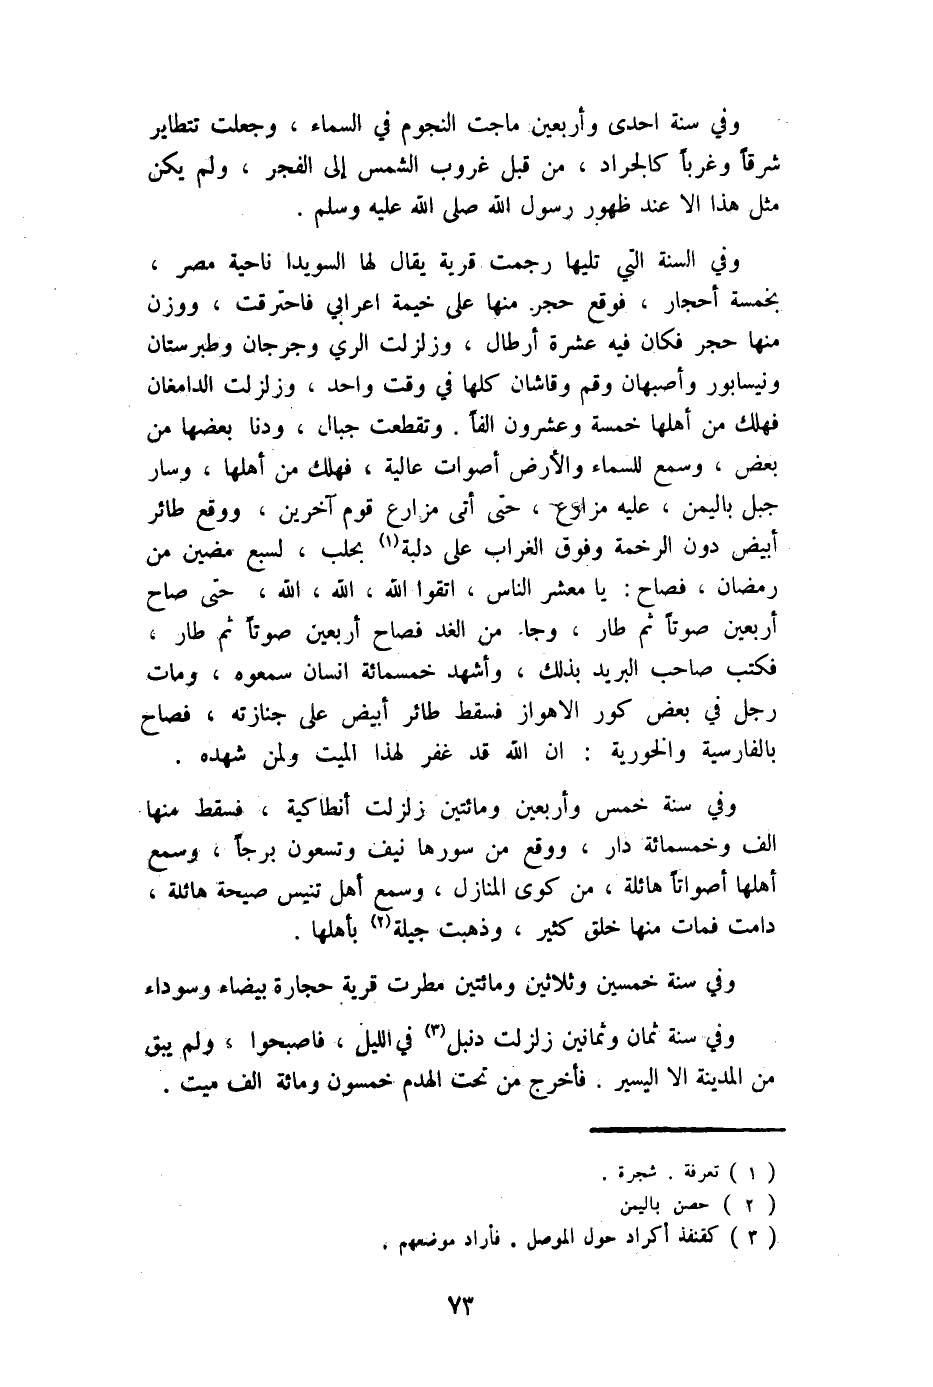 وفي سنة احدى وأربعين ماجت النجوم في السماء ، وجعلت تتطاير
شرقاً وغرباً كالجراد ، من قبل غروب الشمس إلى الفجر ، ولم يكن
مثل هذا الا عند ظهور رسول الله صلى الله عليه وسلم .
وفي السنة التي تليها رجمت قرية يقال لها السويدا ناحية مصر ،
بخمسة أحجار ، فوقع حجر منها على خيمة اعرابي فاحترقت ، ووزن
منها حجر فكان فيه عشرة أرطال ، وزلزلت الري وجرجان وطبرستان
ونيسابور وأصبهان وقم وقاشان كلها في وقت واحد ، وزلزلت الدامغان
فهلك من أهلها خمسة وعشرون الفاً . وتقطعت جبال ، ودنا بعضها من
بعض ، وسمع للسماء والأرض أصوات عالية ، فهلك من أهلها ، وسار
جبل باليمن ، عليه مزارع ، حتى أتى مزارع قوم آخرين ، ووقع طائر
أبيض دون الرخمة وفوق الغراب على دلبة(١) بحلب ، لسبع مضين من
رمضان ، فصاح : يا معشر الناس ، اتقوا الله ، الله ، الله ، حتى صاح
أربعين صوتاً ثم طار ، وجاء من الغد فصاح أربعين صوتاً ثم طار ،
فكتب صاحب البريد بذلك ، وأشهد خمسمائة انسان سمعوه ، ومات
رجل في بعض كور الاهواز فسقط طائر أبيض على جنازته ، فصاح
بالفارسية والخورية : ان الله قد غفر لهذا الميت ولمن شهده .
وفي سنة خمس وأربعين ومائتين زلزلت أنطاكية ، فسقط منها
الف وخمسمائة دار ، ووقع من سورها نيف وتسعون برجاً ، وسمع
أهلها أصواتاً هائلة ، من كوى المنازل ، وسمع أهل تنيس صيحة هائلة ،
دامت فمات منها خلق كثير ، وذهبت جيلة(٢) بأهلها .
وفي سنة خمسين وثلاثين ومائتين مطرت قرية حجارة بيضاء وسوداء
وفي سنة ثمان وثمانين زلزلت دنبل(٣) في الليل ، فاصبحوا ، ولم يبق
من المدينة الا اليسير . فأخرج من تحت الهدم خمسون ومائة الف ميت .
( ١ ) تعرفة . شجرة .
( ٢ ) حصن باليمن
( ٣ ) كقنفذ أكراد حول الموصل . فأراد موضعهم .
٧٣